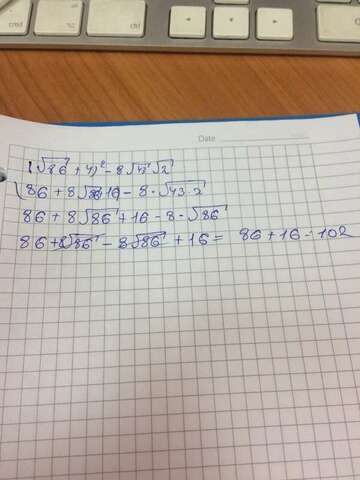 cmd
alt
ctrl
Date
(√86 + 4)² - 8√43 √2
86 + 8√86 + 16 - 8 · √43·2
86 + 8√86 + 16 - 8 · √86
86 + 8√86 - 8√86 + 16 = 86 + 16 = 102